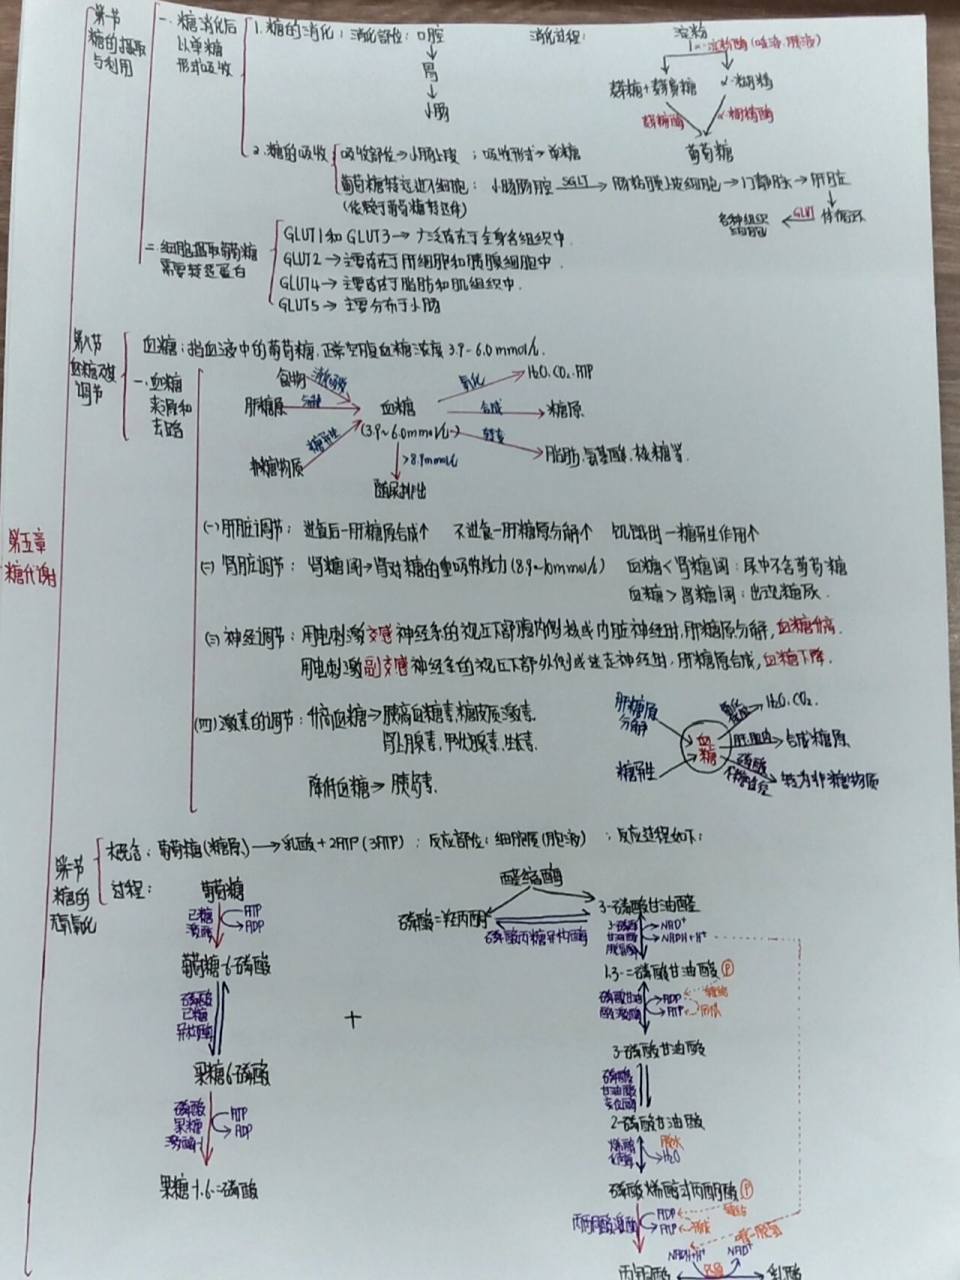 第五章
糖代谢
第一节
糖的摄取
与利用
一.糖消化后
以单糖
形式吸收
1.糖的消化:消化部位:口腔
胃
小肠
消化过程:
淀粉
淀粉酶(唾液.胰液)
麦芽糖+麦芽三糖
α-糊精
麦芽糖酶
α-糊精酶
葡萄糖
2.糖的吸收
吸收部位→小肠上皮;吸收形式→单糖
葡萄糖转运进入细胞:小肠肠腔 SGLT→肠粘膜上皮细胞→门静脉→肝脏
(依赖于葡萄糖转运体)
体循环
GLUT
各种组织
细胞
二.细胞摄取葡萄糖
需要转运蛋白
GLUT1和GLUT3→广泛存在于全身各组织中.
GLUT2→主要存在于肝细胞和胰腺细胞中.
GLUT4→主要存在于脂肪和肌组织中.
GLUT5→主要分布于小肠
血糖:指血液中的葡萄糖.正常空腹血糖浓度3.9-6.0mmol/L.
一.血糖
来源和
去路
食物
消化吸收
肝糖原
分解
非糖物质
糖异生
血糖
(3.9~6.0mmol/L)
氧化
H₂O.CO₂.ATP
合成
糖原
转变
脂肪.氨基酸.核糖等.
>8.9mmol/L
随尿排出
(一)肝脏调节:进食后—肝糖原合成↑ 不进食—肝糖原分解↑ 饥饿时—糖异生作用↑
(二)肾脏调节:肾糖阈→肾对糖的重吸收能力(8.9~10mmol/L) 血糖<肾糖阈:尿中不含葡萄糖
血糖>肾糖阈:出现糖尿.
(三)神经调节:用电刺激交感神经系的视丘下部腹内侧核或内脏神经时,肝糖原分解,血糖升高.
用电刺激副交感神经系的视丘下部外侧或迷走神经时,肝糖原合成,血糖下降.
(四)激素的调节:升高血糖→胰高血糖素.糖皮质激素.
肾上腺素.甲状腺素.生长素.
降低血糖→胰岛素.
肝糖原
分解
糖异生
血
糖
H₂O.CO₂.
合成糖原
转为非糖物质
糖的
无氧氧化
概念:葡萄糖(糖原)→乳酸+2ATP(3ATP);反应部位:细胞质(胞液);反应过程如下:
过程:
葡萄糖
己糖
激酶
ATP
ADP
葡萄糖-6-磷酸
磷酸
己糖
异构酶
果糖6-磷酸
磷酸
果糖
激酶-1
ATP
ADP
果糖-1.6-二磷酸
+
醛缩酶
磷酸二羟丙酮
磷酸丙糖异构酶
3-磷酸甘油醛
3-磷酸
甘油醛
脱氢酶
NAD⁺
NADH+H⁺
1.3-二磷酸甘油酸 Ⓟ
磷酸甘油
酸激酶
ADP
ATP
3-磷酸甘油酸
磷酸
甘油酸
变位酶
2-磷酸甘油酸
烯醇
化酶
脱水
H₂O
磷酸烯醇式丙酮酸 Ⓟ
丙酮酸激酶
ADP
ATP
NADH+H⁺
NAD⁺
丙酮酸
乳酸